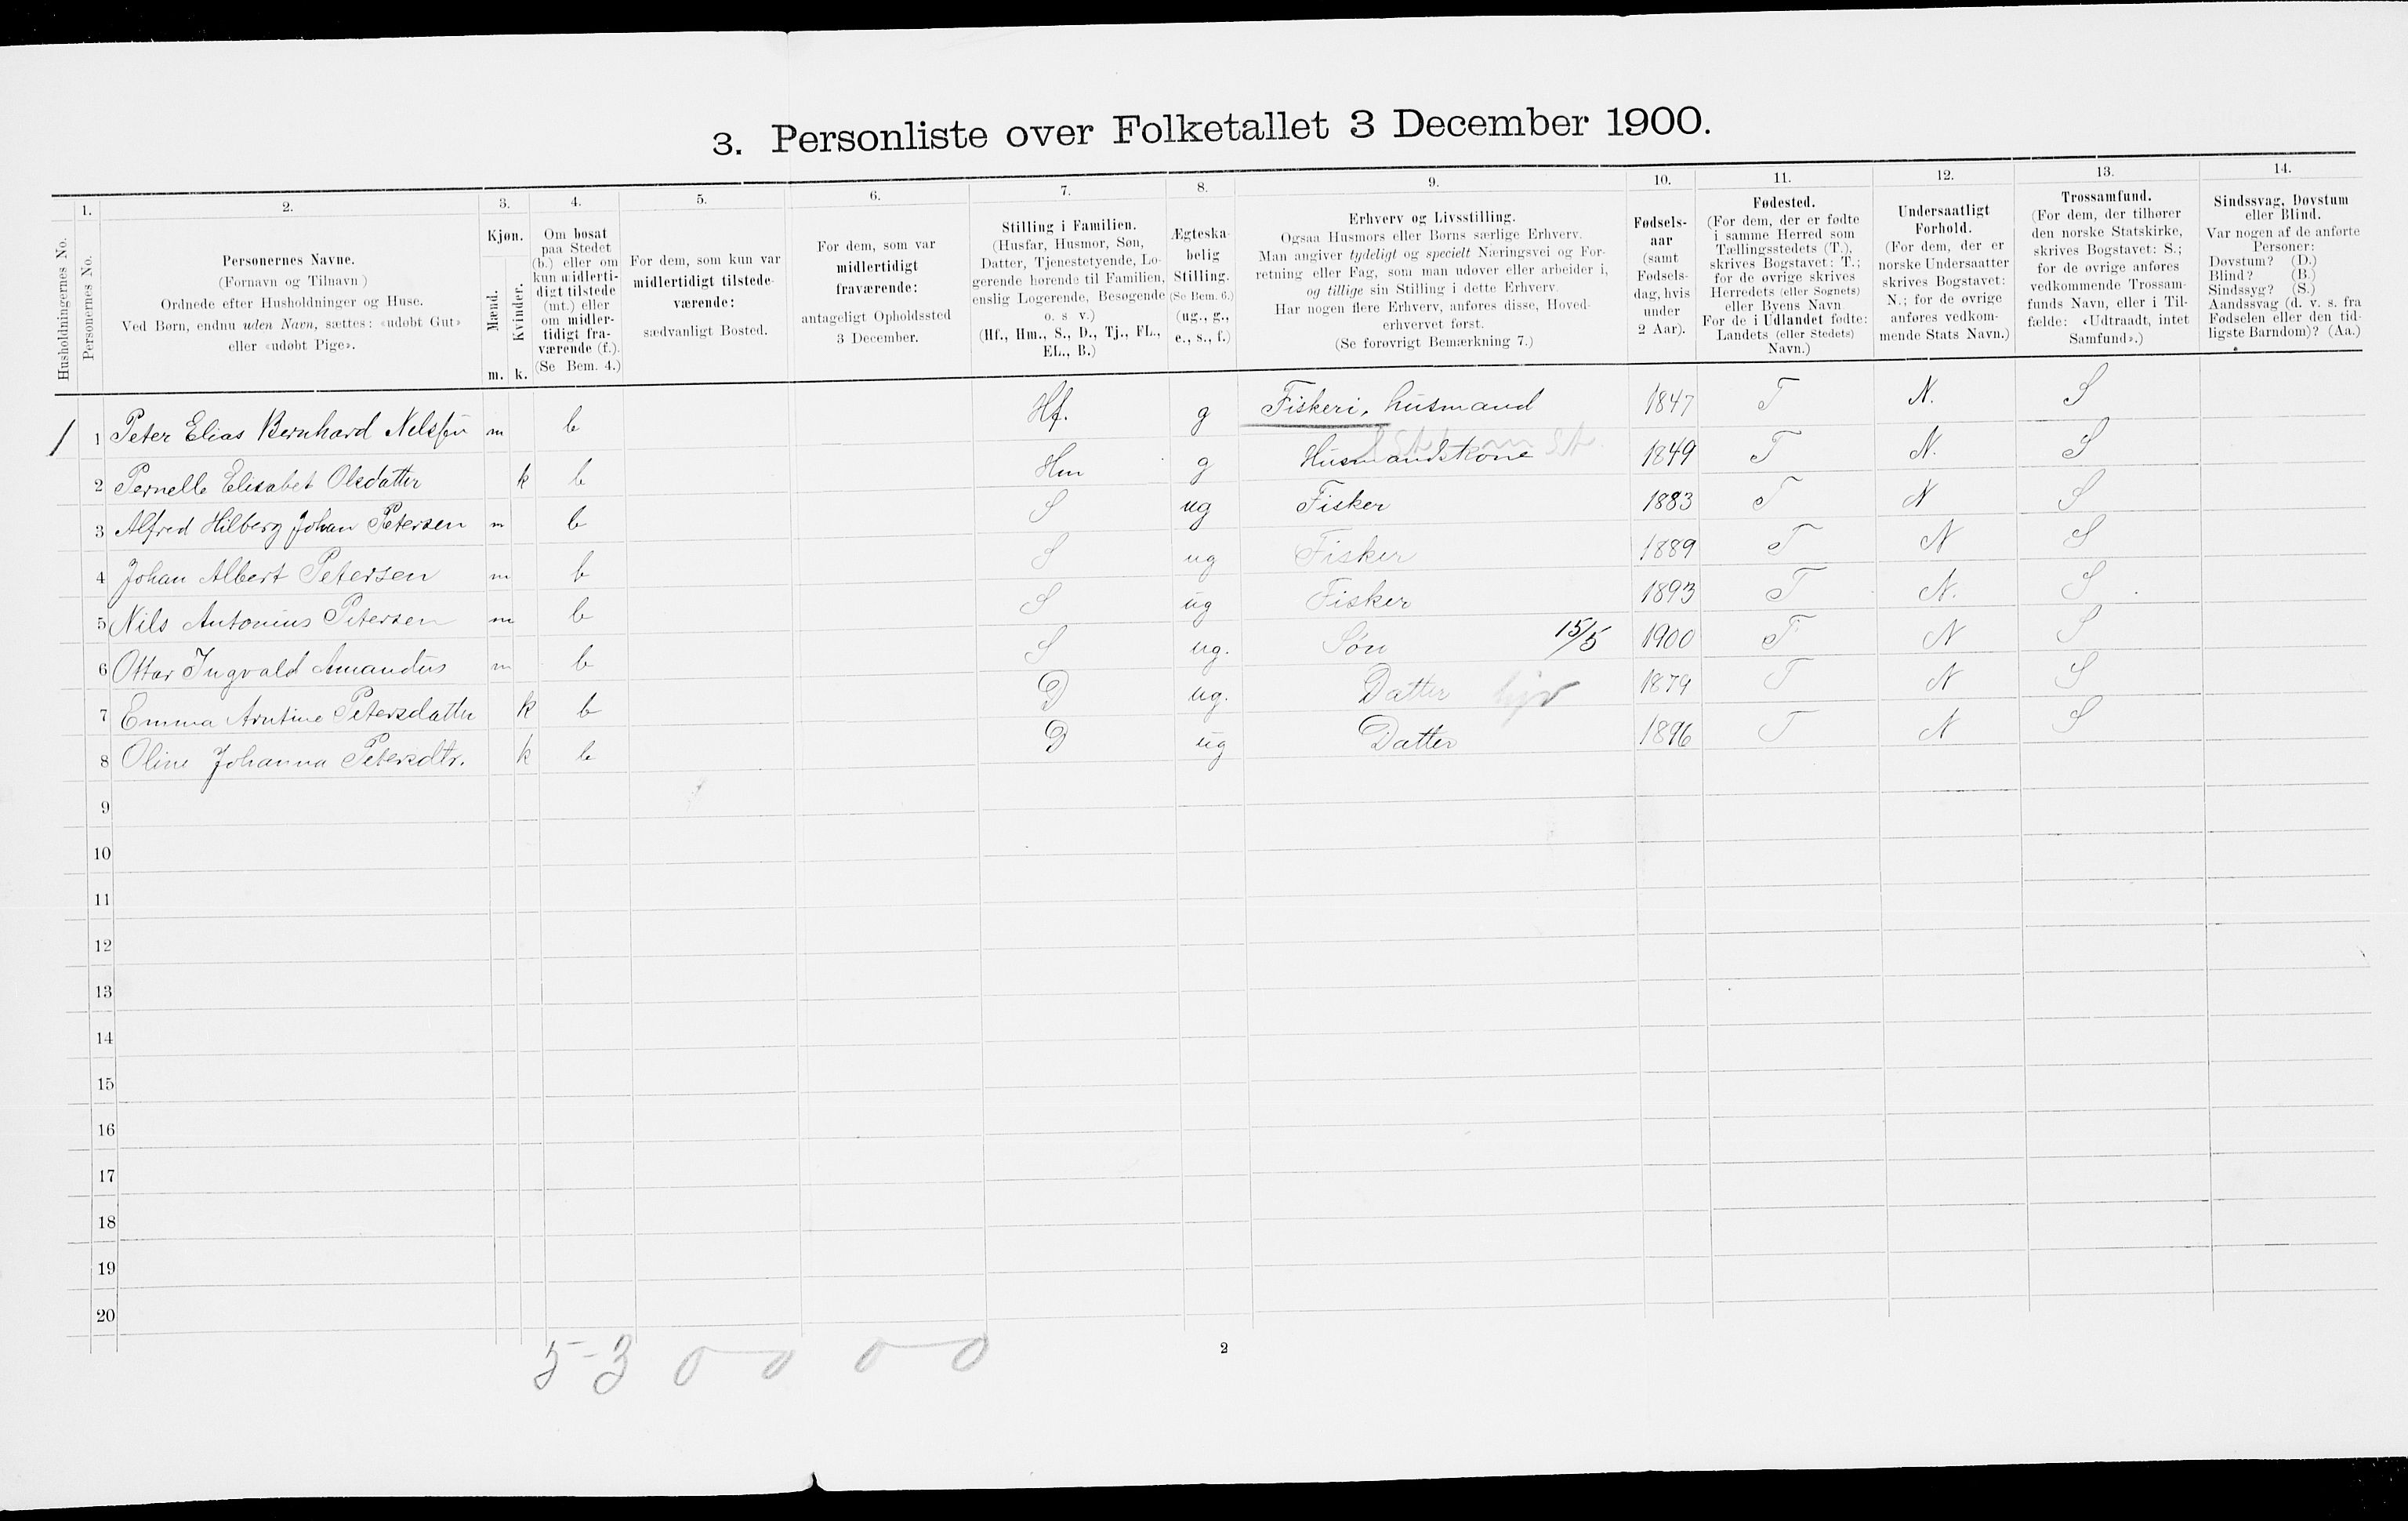 3. Personliste over Folketallet 3 December 1900.
1. 2. 3. 4. 5. 6. 7. 8. 9. 10. 11. 12. 13. 14.
Husholdningernes No.
Personernes No.
Personernes Navne.
(Fornavn og Tilnavn)
Ordnede efter Husholdninger og Huse.
Ved Børn, endnu uden Navn, sættes: «udøbt Gut»
eller «udøbt Pige».
Kjøn.
Mænd.
Kvinder.
m. k.
Om bosat
paa Stedet
(b.) eller om
kun midlerti-
digt tilstede
(mt.) eller
om midler-
tidigt fra-
værende (f.).
(Se Bem. 4.)
For dem, som kun var
midlertidigt tilstede-
værende:
sædvanligt Bosted.
For dem, som var
midlertidigt
fraværende:
antageligt Opholdssted
3 December.
Stilling i Familien.
(Husfar, Husmor, Søn,
Datter, Tjenestetyende, Lo-
gerende hørende til Familien,
enslig Logerende, Besøgende
o. s v.)
(Hf., Hm., S., D., Tj., FL.,
EL., B.)
Ægteska-
belig
Stilling.
(Se Bem. 6.)
(ug., g.,
e., s., f.)
Erhverv og Livsstilling.
Ogsaa Husmors eller Børns særlige Erhverv.
Man angiver tydeligt og specielt Næringsvei og For-
retning eller Fag, som man udøver eller arbeider i,
og tillige sin Stilling i dette Erhverv.
Har nogen flere Erhverv, anføres disse, Hoved-
erhvervet først.
(Se forøvrigt Bemærkning 7.)
Fødsels-
aar
(samt
Fødsels-
dag, hvis
under
2 Aar).
Fødested.
(For dem, der er fødte
i samme Herred som
Tællingsstedets (T.),
skrives Bogstavet: T.;
for de øvrige skrives
Herredets (eller Sognets)
eller Byens Navn
For de i Udlandet fødte:
Landets (eller Stedets)
Navn.)
Undersaatligt
Forhold.
(For dem, der er
norske Undersaatter
skrives Bogstavet:
N.; for de øvrige
anføres vedkom-
mende Stats Navn.)
Trossamfund.
(For dem, der tilhører
den norske Statskirke,
skrives Bogstavet: S.;
for de øvrige anføres
vedkommende Trossam-
funds Navn, eller i Til-
fælde: «Udtraadt, intet
Samfund».)
Sindssvag, Døvstum
eller Blind.
Var nogen af de anførte
Personer:
Døvstum? (D.)
Blind? (B.)
Sindssyg? (S.)
Aandssvag (d. v. s. fra
Fødselen eller den tid-
ligste Barndom)? (Aa.)
1 1 Peter Elias Bernhard Nelsen m b Hf. g Fiskeri, husmand 1847 T N. S
2 Pernelle Elisabet Olsdatter k b Hm g Husmandskone 1849 T N. S
3 Alfred Hilberg Johan Petersen m b S ug Fisker 1883 T N S
4 Johan Albert Petersen m b S ug Fisker 1889 T N S
5 Nils Antonius Petersen m b S ug Fisker 1893 T N. S
6 Ottar Ingvald Amandus m b S ug. Søn 15/5 1900 T N S
7 Emma Arntine Petersdatter k b D ug. Datter hjv 1879 T N S
8 Oline Johanna Petersdtr. k b D ug Datter 1896 T N S
9
10
11
12
13
14
15
16
17
18
19
20
5-3 0 - 0 0 - 0
2